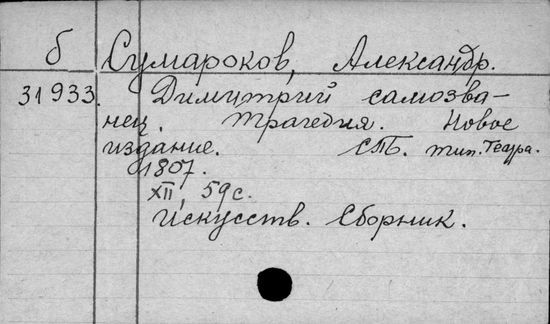 б Сумароков, Александр.
31933. Димитрий самозва-
нец. Трагедия. Новое
издание. СПБ. тип. Театра.
1807.
XII, 59 с.
Искусств. Сборник.